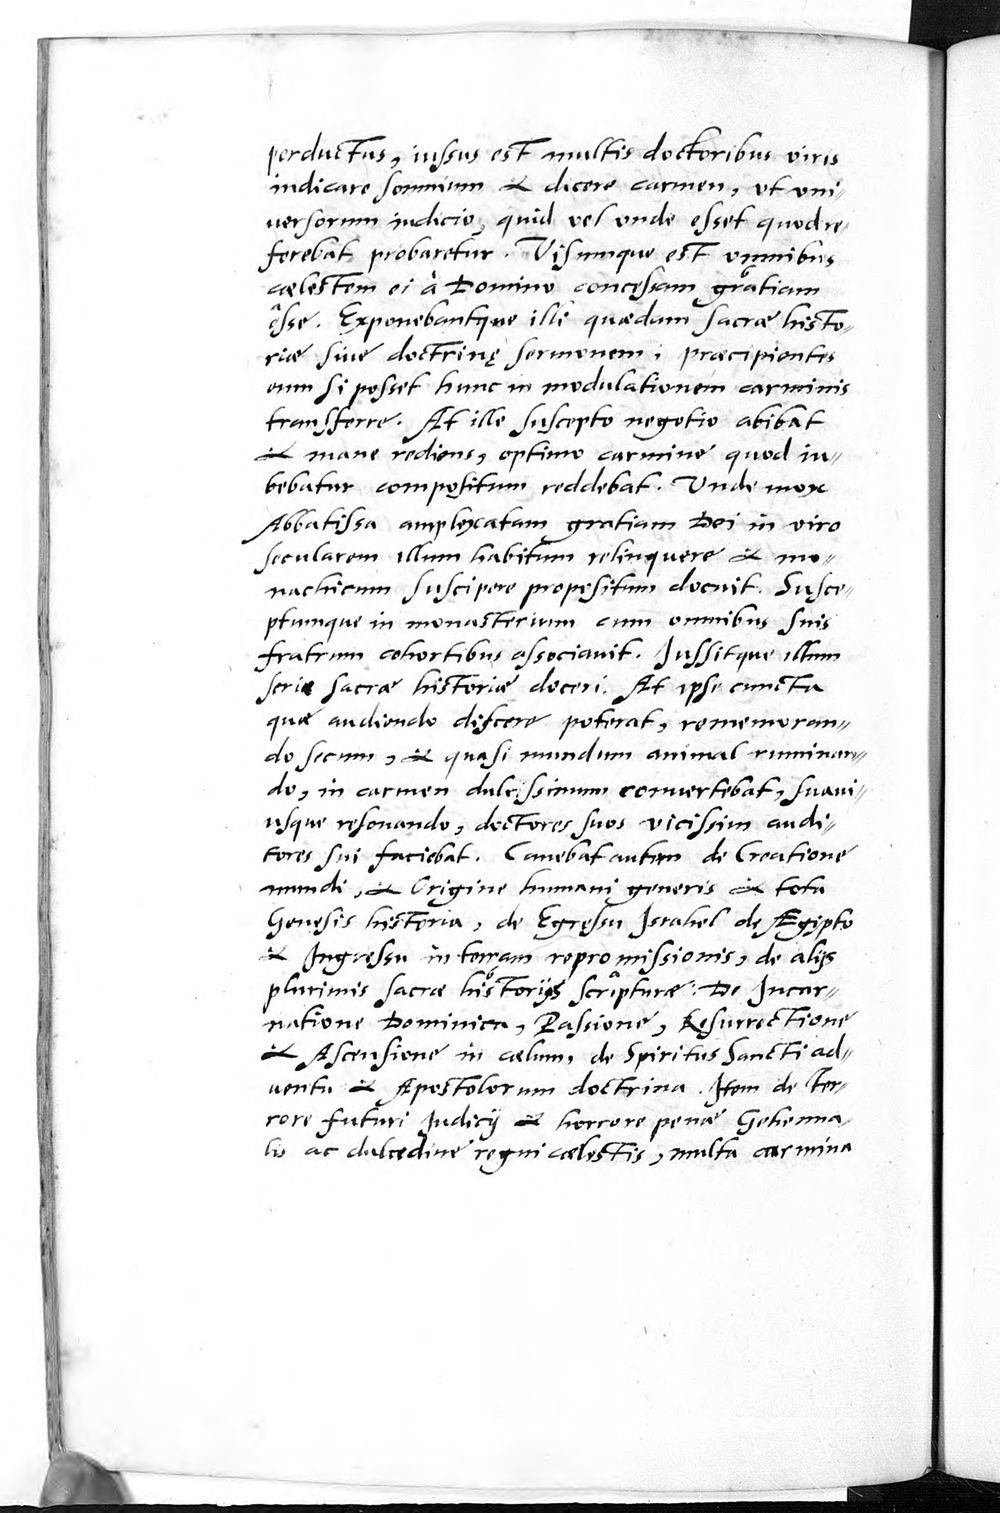 perductus, iussus est multis doctoribus viris
indicare somnium & dicere carmen, ut uni-
versorum iudicio, quid vel unde esset quod re-
ferebat probaretur. Visumque est omnibus
cælestem ei à Domino concessam gratiam
esse. Exponebantque illi quædam sacræ histo-
riæ sive doctrinę sermonem, præcipientes
eum si posset hunc in modulationem carminis
transferre. At ille suscepto negotio abibat
& mane rediens, optimo carmine quod iu-
bebatur compositum reddebat. Unde mox
Abbatissa amplexatam gratiam Dei in viro
secularem illum habitum relinquere & mo-
nachicum suscipere propositum docuit. Susce-
ptumque in monasterium cum omnibus suis
fratrum cohortibus associavit. Jussitque illum
seriæ sacræ historiæ doceri. At ipse cuncta
quæ audiendo discere poterat, rememoran-
do secum, & quasi mundum animal ruminan-
do, in carmen dulcissimum convertebat, suavi-
usque resonando, doctores suos vicissim audi-
tores sui faciebat. Canebat autem de Creatione
mundi, & Origine humani generis & tota
Genesis historia, de Egressu Israhel de Ægipto
& Ingressu in terram repromissionis, de alijs
plurimis sacræ historijs scripturæ: De Incar-
natione Dominica, Passione, Resurrectione
& Ascensione in cælum, de Spiritus Sancti ad-
ventu & Apostolorum doctrina. Item de Ter-
rore futuri Judicij & horrore penæ Gehenna-
lis ac dulcedine regni cælestis, multa carmina